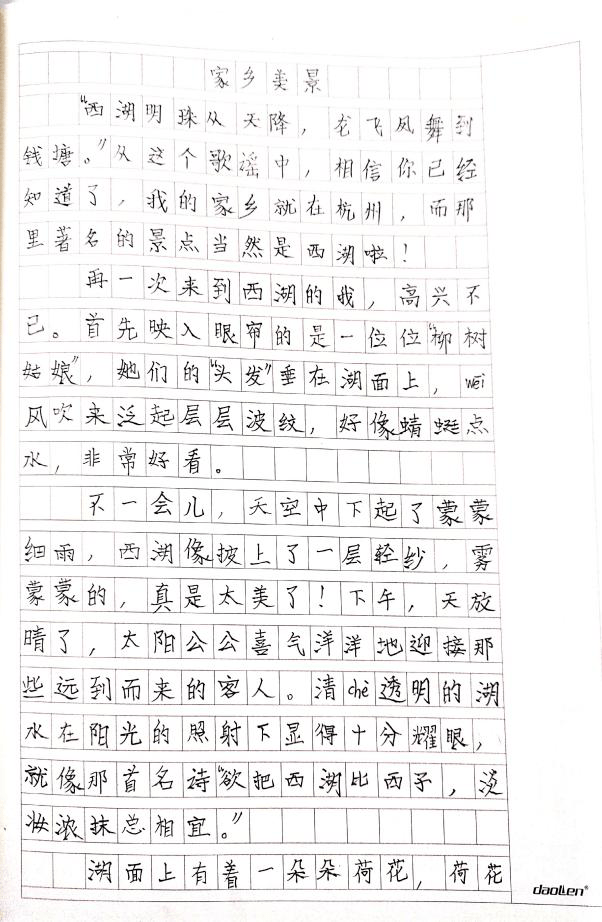 家乡美景
“西湖明珠从天降，龙飞凤舞到
钱塘。”从这个歌谣中，相信你已经
知道了，我的家乡就在杭州，而那
里著名的景点当然是西湖啦！
再一次来到西湖的我，高兴不
已。首先映入眼帘的是一位位“柳树
姑娘”，她们的“头发”垂在湖面上，wēi
风吹来泛起层层波纹，好像蜻蜓点
水，非常好看。
不一会儿，天空中下起了蒙蒙
细雨，西湖像披上了一层轻纱，雾
蒙蒙的，真是太美了！下午，天放
晴了，太阳公公喜气洋洋地迎接那
些远到而来的客人。清chè透明的湖
水在阳光的照射下显得十分耀眼，
就像那首名诗“欲把西湖比西子，淡
妆浓抹总相宜。”
湖面上有着一朵朵荷花，荷花
daolen®